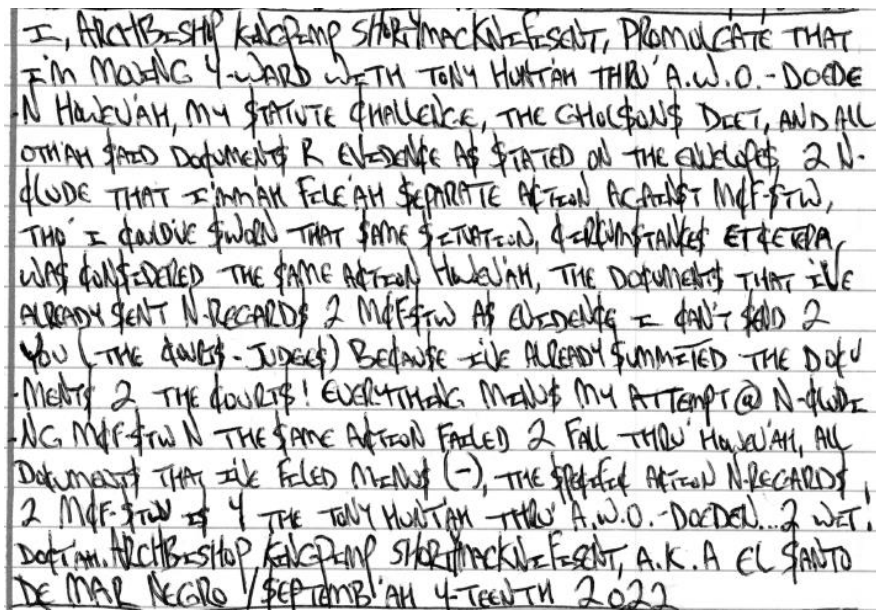 I, ARCHBISHOP KINGPIMP SHORTYMACKNIFISENT, PROMULGATE THAT
I'M MOVING 4-WARD WITH TONY HUNTAH THRU' A.W.O.-DOEDE
-N HOWEV'AH, MY $TATUTE ¢HALLENGE, THE GHOL$ON$ DIET, AND ALL
OTH'AH $AID DO¢UMENT$ R EVIDEN¢E A$ $TATED ON THE ENVELOPE$ 2 N-
¢LUDE THAT I'MM'AH FILE'AH $EPARATE A¢TION AGAIN$T M¢F-$TW,
THO' I ¢OULD'VE $WORN THAT $AME $ITUATION, ¢IR¢UM$TAN¢E$ ET¢ETERA,
WA$ ¢ON$IDERED THE $AME A¢TION HOWEV'AH, THE DO¢UMENT$ THAT I'VE
ALREADY $ENT N-REGARD$ 2 M¢F-$TW A$ EVIDEN¢E I ¢AN'T $END 2
YOU (-THE ¢OURT$ - JUDGE$) BE¢AU$E I'VE ALREADY $UMMITED THE DO¢U
-MENT$ 2 THE ¢OURT$! EVERYTHING MINU$ MY ATTEMPT @ N-¢LUDI
-NG M¢F-$TW N THE $AME A¢TION FAILED 2 FALL THRU' HOWEV'AH, ALL
DO¢UMENT$ THAT I'VE FILED MINU$ (-), THE $PE¢IFI¢ A¢TION N-REGARD$
2 M¢F-$TW I$ 4 THE TONY HUNTAH THRU' A.W.O.-DOEDEN...2 WIT!
DO¢TAH. ARCHBISHOP KINGPIMP SHORTYMACKNIFISENT, A.K.A EL $ANTO
DE MAR NEGRO / $EPTEMB'AH 4-TEENTH 2022